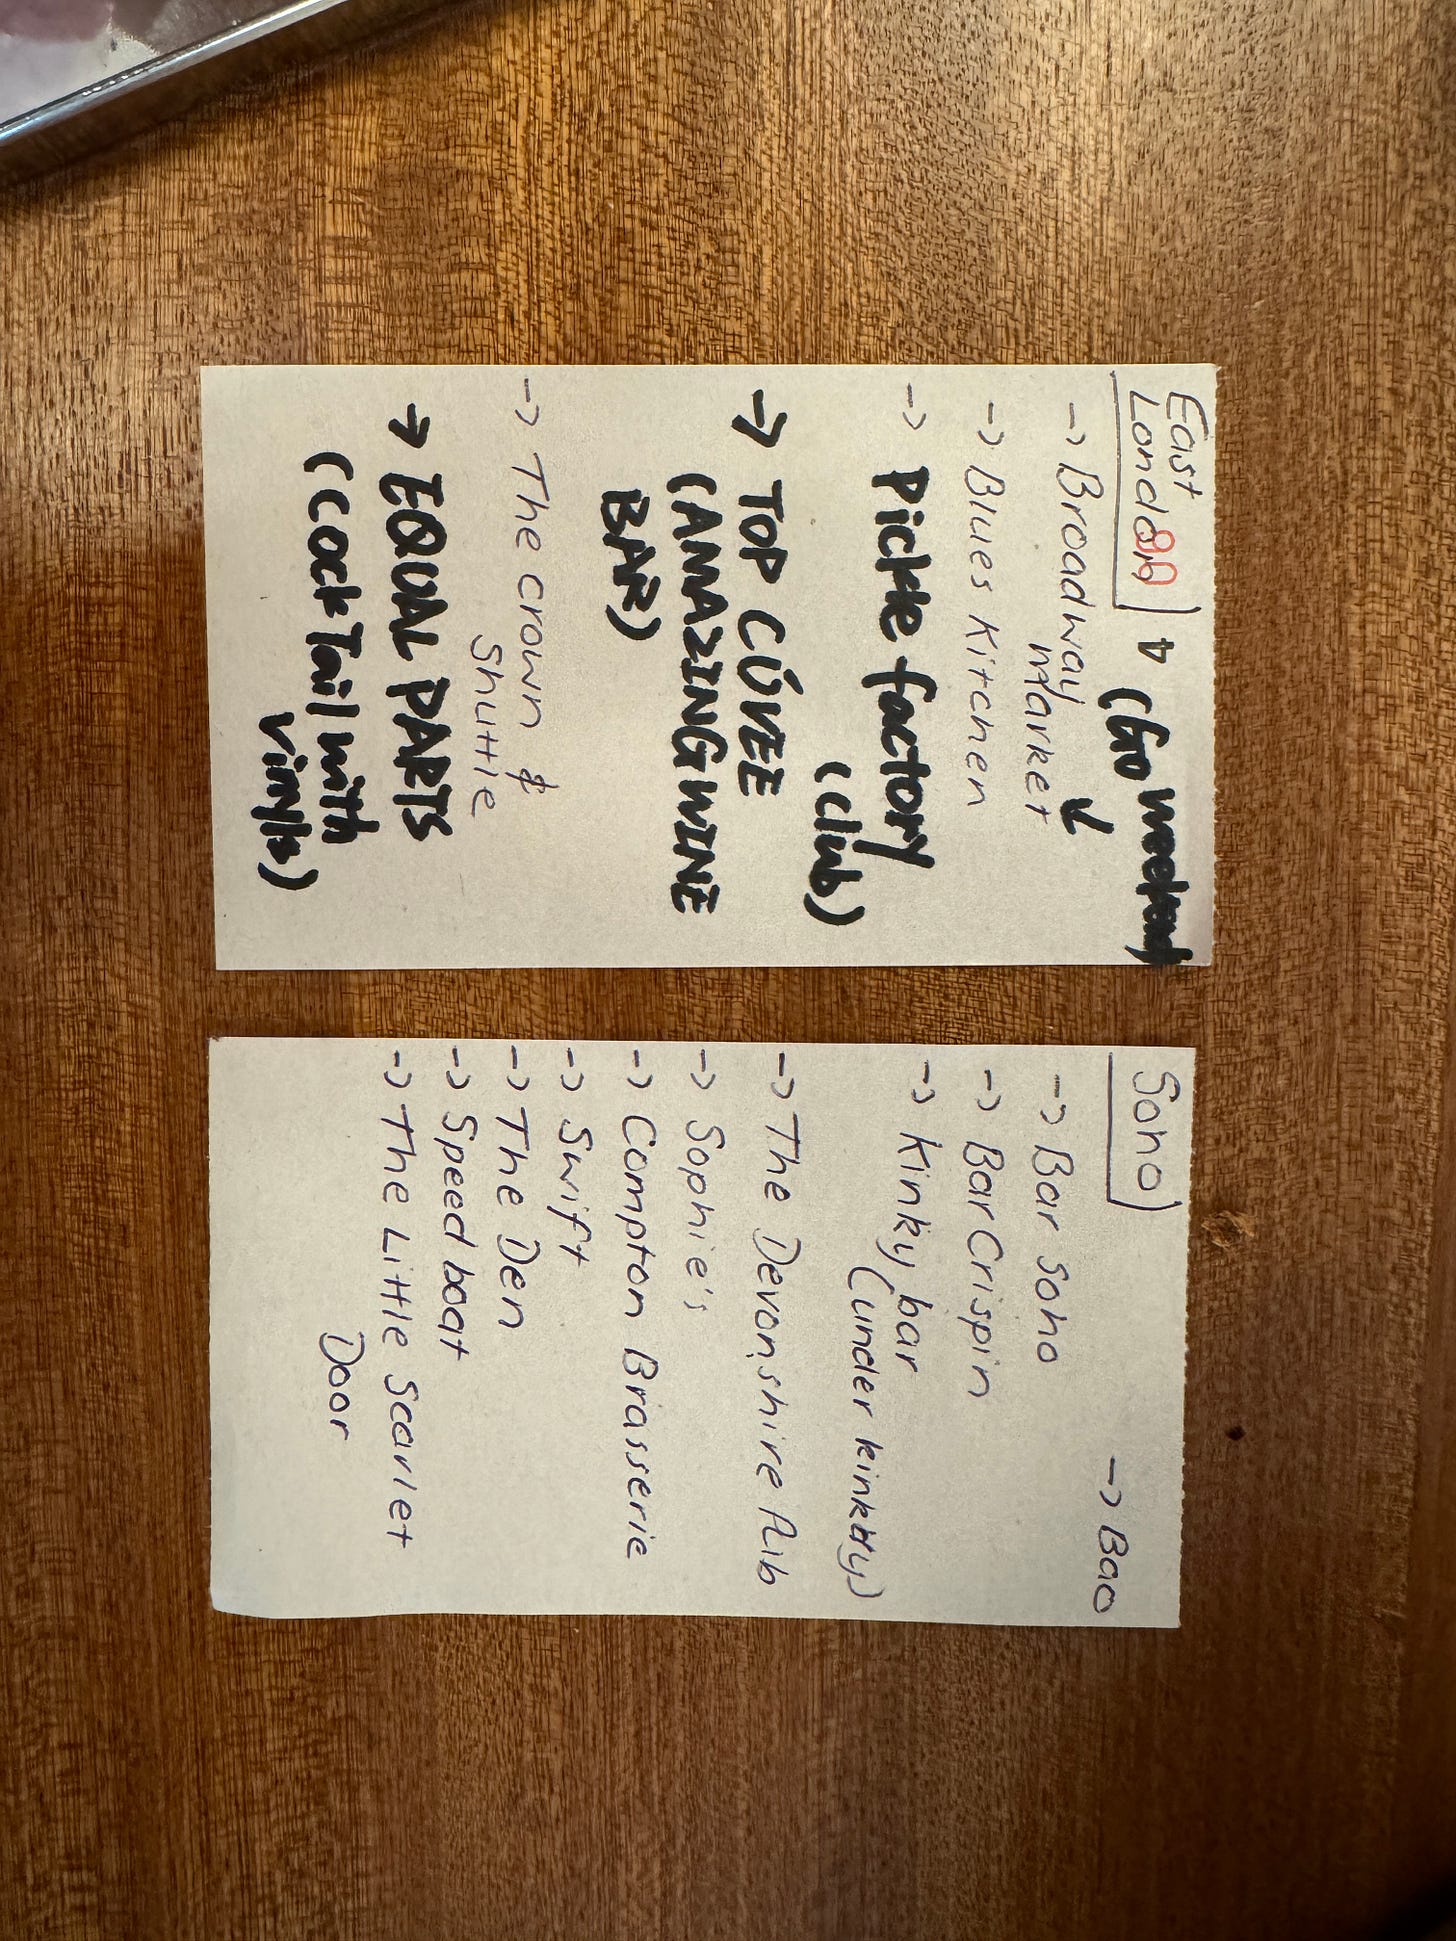 East
London (Go weekend)
-> Broadway
Market
-> Blues Kitchen
-> Pickle factory
(club)
-> TOP CÚVEE
(AMAZING WINE
BAR)
-> The crown &
Shuttle
-> EQUAL PARTS
(Cocktail with
Vinyls)
Soho
-> Bao
-> Bar Soho
-> Bar Crispin
-> Kinky bar
(under kinktly)
-> The Devonshire
-> Sophie's
-> Compton Brasserie
-> Swift
-> The Den
-> Speedboat
-> The Little Scarlet
Door